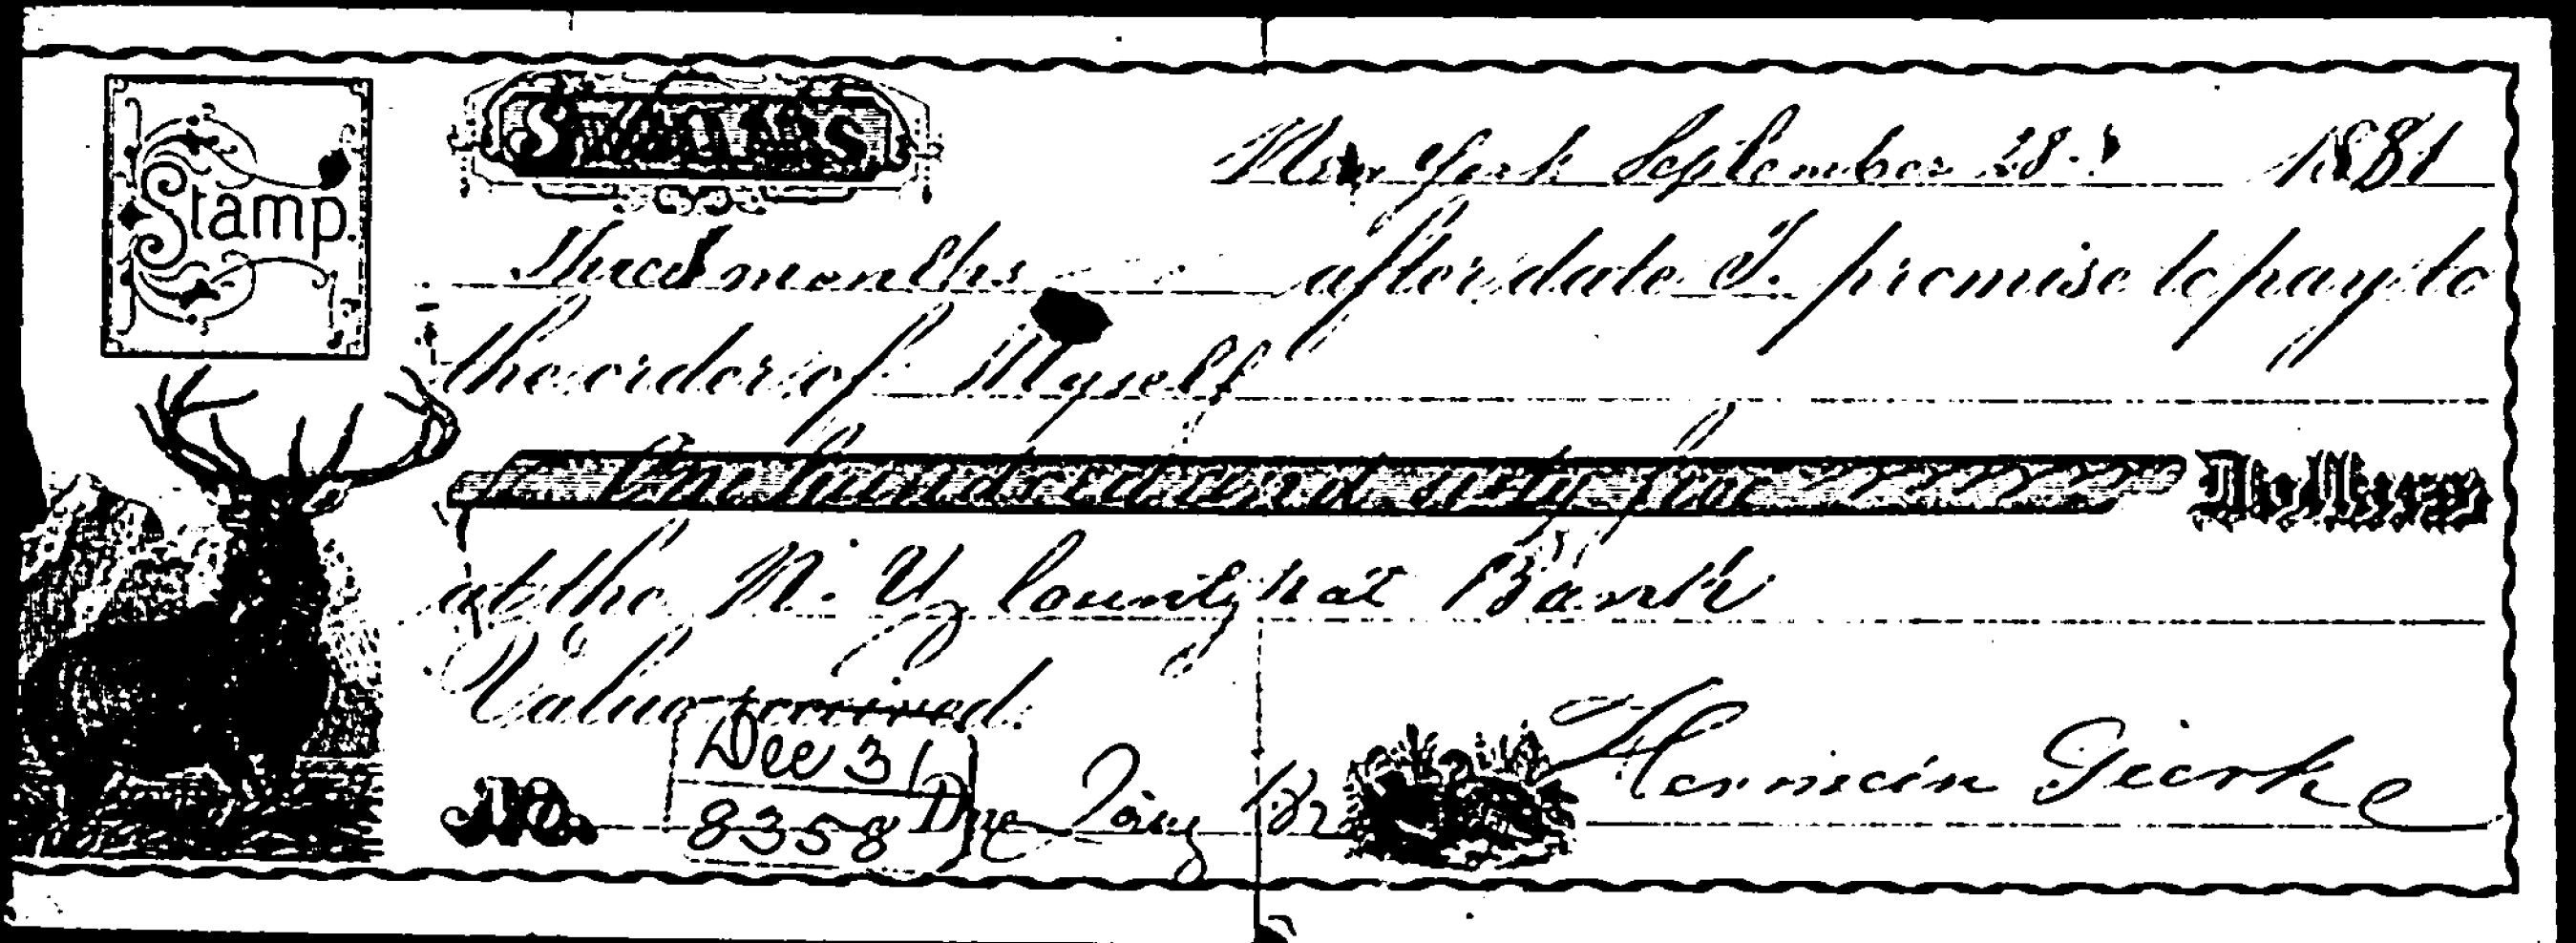 Stamp
New York September 28. 1881
Three months after date I. promise to pay to
the order of Myself
One hundred and sixty Dollars
at the N. Y. County Nat Bank
Value received.
Dec 31
No. 8358 Due Jany
Herman Gierke